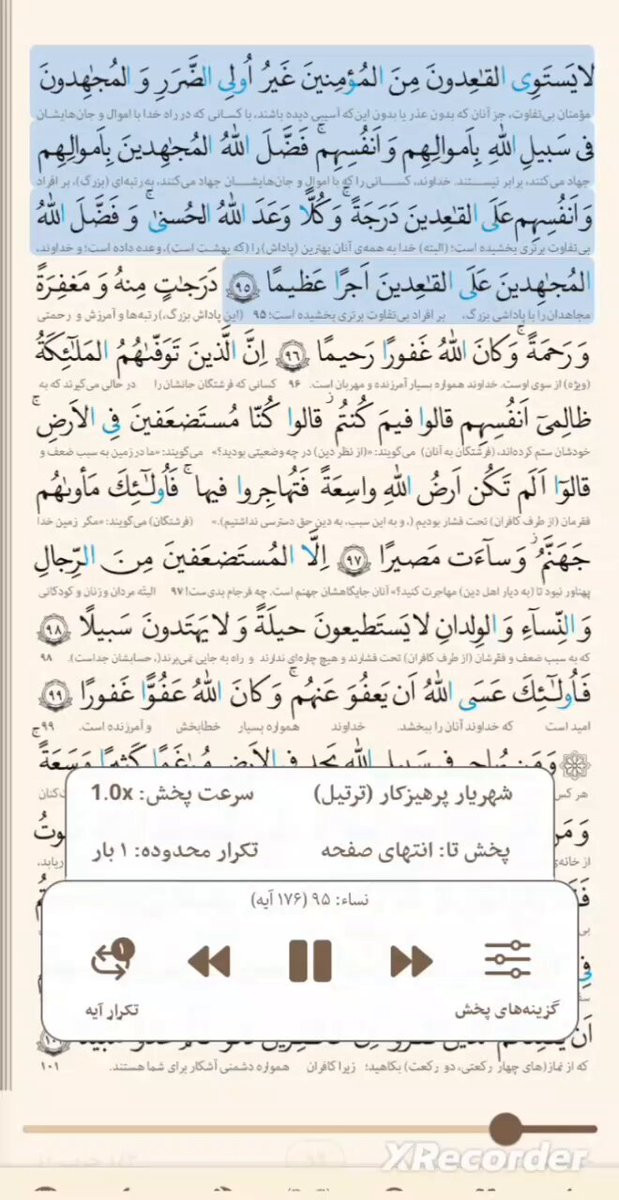 لایَستَوِی القٰعِدونَ مِنَ المُؤمِنینَ غَیرُ اُولِی الضَّرَرِ وَ المُجٰهِدونَ
مؤمنان بی‌تفاوت، جز آنان که بدون عذر یا بدون این‌که آسیبی دیده باشند، با کسانی که در راه خدا با اموال و جان‌هایشان
فی سَبیلِ اللهِ بِاَموالِهِم وَ اَنفُسِهِم ۚ فَضَّلَ اللهُ المُجٰهِدینَ بِاَموالِهِم
جهاد می‌کنند، برابر نیستند. خداوند، کسانی را که با اموال و جان‌هایشان جهاد می‌کنند، به رتبه‌ای (بزرگ)، بر افراد
وَ اَنفُسِهِم عَلَی القٰعِدینَ دَرَجَةً ۚ وَ کُلًّا وَعَدَ اللهُ الحُسنیٰ ۚ وَ فَضَّلَ اللهُ
بی‌تفاوت برتری بخشیده است؛ (البته) خدا به همه‌ی آنان بهترین (پاداش) را (که بهشت است)، وعده داده است؛ و خداوند،
المُجٰهِدینَ عَلَی القٰعِدینَ اَجرًا عَظیمًا ﴿۹۵﴾ دَرَجٰتٍ مِنهُ وَ مَغفِرَةً
مجاهدان را با پاداشی بزرگ، بر افراد بی‌تفاوت برتری بخشیده است؛ ۹۵ (این پاداش بزرگ،) رتبه‌ها و آمرزش و رحمتی
وَ رَحمَةً ۚ وَ کانَ اللهُ غَفورًا رَحیمًا ﴿۹۶﴾ اِنَّ الَّذینَ تَوَفّٰىهُمُ المَلٰئِکَةُ
(ویژه) از سوی اوست. خداوند همواره بسیار آمرزنده و مهربان است. ۹۶ کسانی که فرشتگان جانشان را در حالی می‌گیرند که به
ظالِمیٓ اَنفُسِهِم قالوا فیمَ کُنتُم ۖ قالوا کُنّا مُستَضعَفینَ فِی الاَرضِ ۚ
خودشان ستم کرده‌اند، (فرشتگان به آنان) می‌گویند: «(از نظر دین) در چه وضعیتی بودید؟» می‌گویند: «ما در زمین به سبب ضعف و
قالوٓا اَلَم تَکُن اَرضُ اللهِ واسِعَةً فَتُهاجِروا فیها ۚ فَاُولٰئِکَ مَأوىٰهُم
فقرمان (از طرف کافران) تحت فشار بودیم (، و به این سبب، به دین حق دسترسی نداشتیم).» (فرشتگان) می‌گویند: «مگر زمین خدا
جَهَنَّمُ ۖ وَ سآءَت مَصیرًا ﴿۹۷﴾ اِلَّا المُستَضعَفینَ مِنَ الرِّجالِ
پهناور نبود تا (به دیار اهل دین) مهاجرت کنید؟» آنان جایگاهشان جهنم است. چه فرجام بدی‌ست! ۹۷ البتّه مردان و زنان و کودکانی
وَ النِّسآءِ وَ الوِلدانِ لایَستَطیعونَ حیلَةً وَ لایَهتَدونَ سَبیلًا ﴿۹۸﴾
که به سبب ضعف و فقرشان (از طرف کافران) تحت فشارند و هیچ چاره‌ای ندارند و راه به جایی نمی‌برند(، حسابشان جداست). ۹۸
فَاُولٰئِکَ عَسَی اللهُ اَن یَعفُوَ عَنهُم ۚ وَ کانَ اللهُ عَفُوًّا غَفورًا ﴿۹۹﴾
امید است که خداوند آنان را ببخشد. خداوند همواره بسیار خطابخش و آمرزنده است. ۹۹
وَ مَن یُهاجِر فی سَبیلِ اللهِ یَجِد فِی الاَرضِ مُراغَمًا کَثیرًا وَ سَعَةً
هر کس
شهریار پرهیزکار (ترتیل) سرعت پخش: 1.0x
پخش تا: انتهای صفحه تکرار محدوده: ۱ بار
نساء: ۹۵ (۱۷۶ آیه)
۱
گزینه‌های پخش تکرار آیه
که از نماز(های چهار رکعتی، دو رکعت) بکاهید؛ زیرا کافران همواره دشمنی آشکار برای شما هستند. ۱۰۱
XRecorder